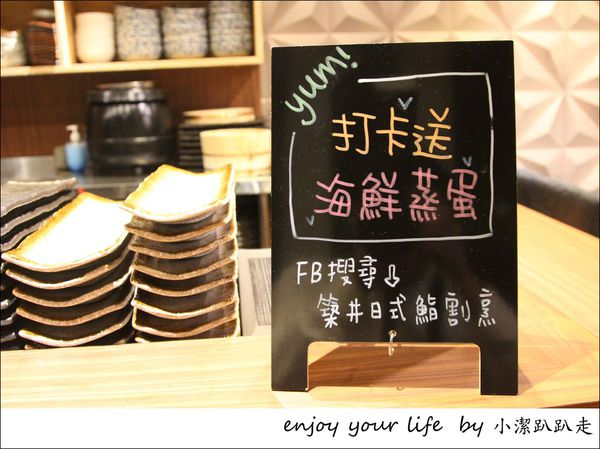 yum!
打卡送
海鮮蒸蛋
FB搜尋⇩
築井日式鮨割烹
enjoy your life by 小潔趴趴走